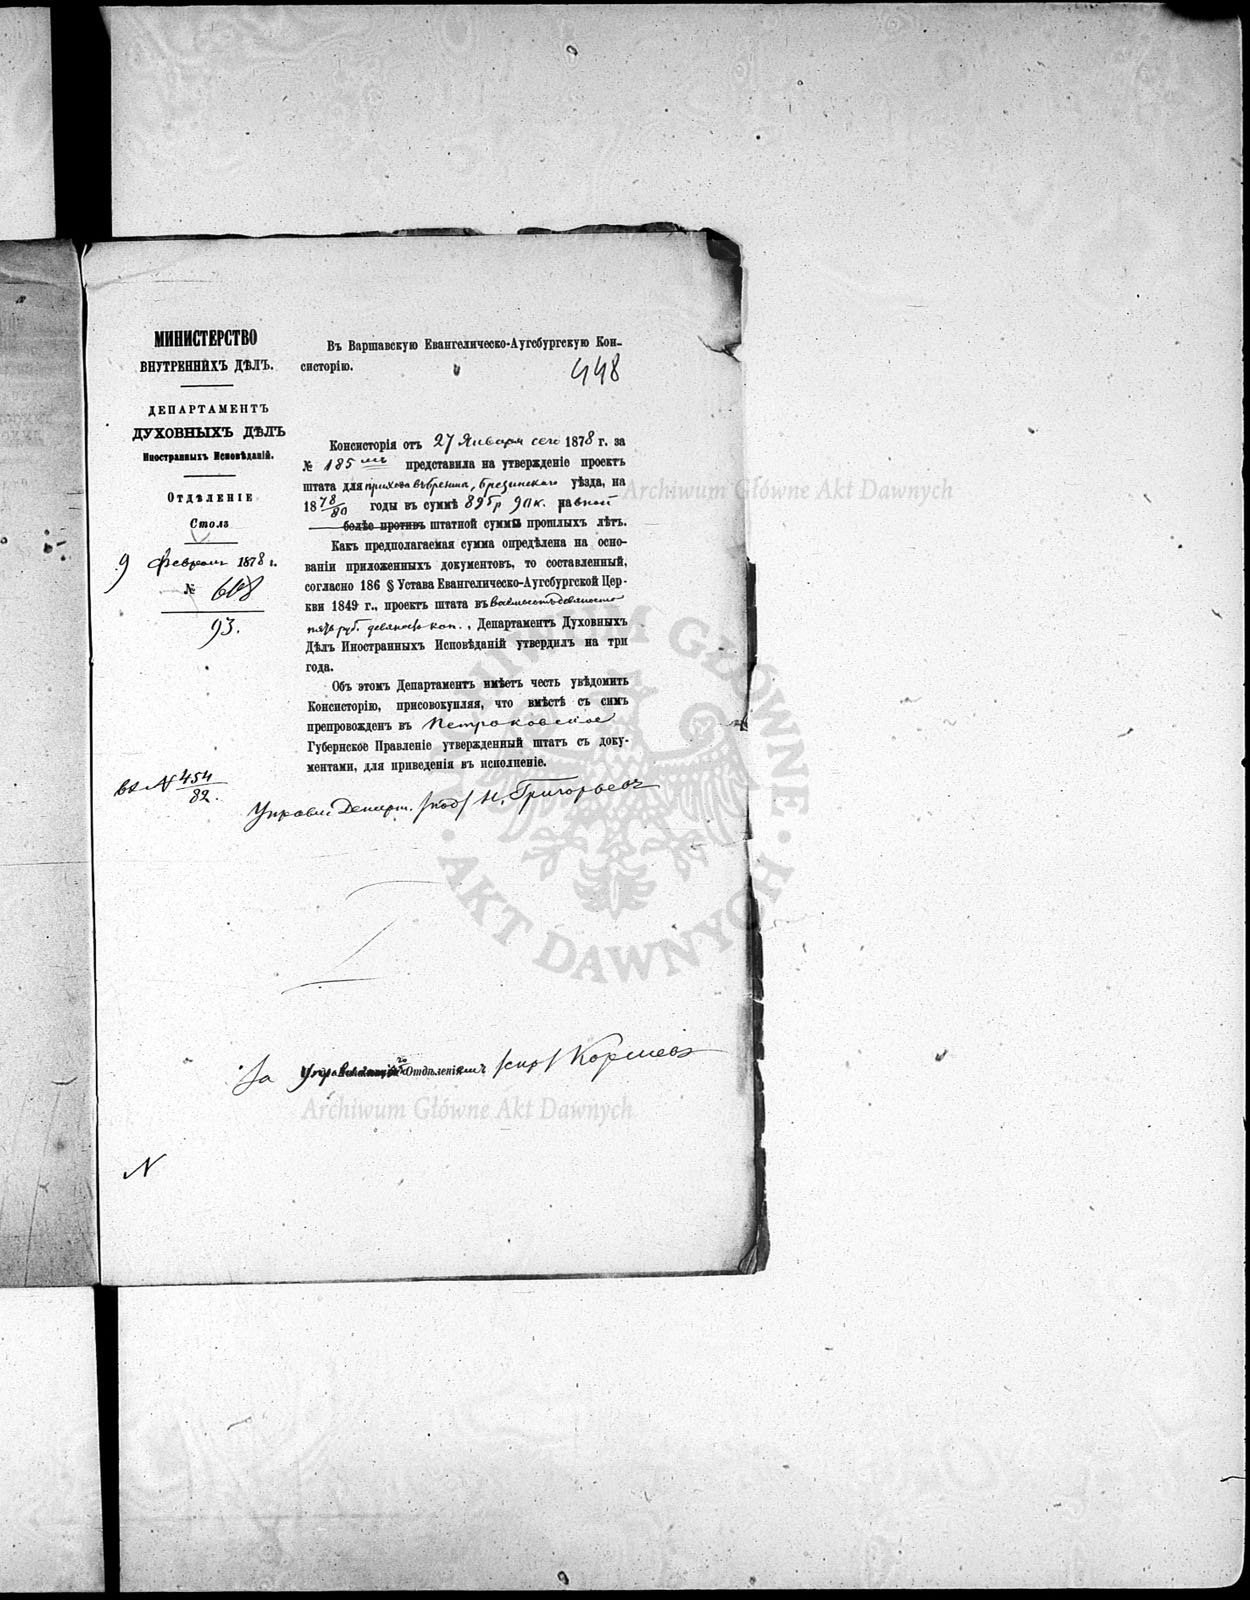 МИНИСТЕРСТВО
ВНУТРЕННИХЪ ДѢЛЪ.
ДЕПАРТАМЕНТЪ
ДУХОВНЫХЪ ДѢЛЪ
Иностранныхъ Исповѣданій.
ОТДѢЛЕНІЕ
Столъ
9 Февраля 1878 г.
№ 618
93.
вх № 454/82.
Въ Варшавскую Евангелическо-Аугсбургскую Кон-
систорію.
448
Консисторія отъ 27 Января сего 1878 г. за
№ 185 представила на утвержденіе проектъ
штата для прихода въ Брезинскаго уѣзда, на
1878/80 годы въ суммѣ 895 р 90 к. равной
болѣе противъ штатной суммы прошлыхъ лѣтъ.
Какъ предполагаемая сумма опредѣлена на осно-
ваніи приложенныхъ документовъ, то составленный,
согласно 186 § Устава Евангелическо-Аугсбургской Цер-
кви 1849 г., проектъ штата въ восемьсотъ девяносто
пять руб. девяносто коп., Департаментъ Духовныхъ
Дѣлъ Иностранныхъ Исповѣданій утвердилъ на три
года.
Объ этомъ Департаментъ имѣетъ честь увѣдомить
Консисторію, присовокупляя, что вмѣстѣ съ симъ
препровожденъ въ Петроковское
Губернское Правленіе утвержденный штатъ съ доку-
ментами, для приведенія въ исполненіе.
Управл Департ. /под/ Н. Григорьевъ
За Отдѣленіемъ /скр/ Коршевъ
N
Archiwum Główne Akt Dawnych
Archiwum Główne Akt Dawnych
ARCHIWUM GŁÓWNE
AKT DAWNYCH